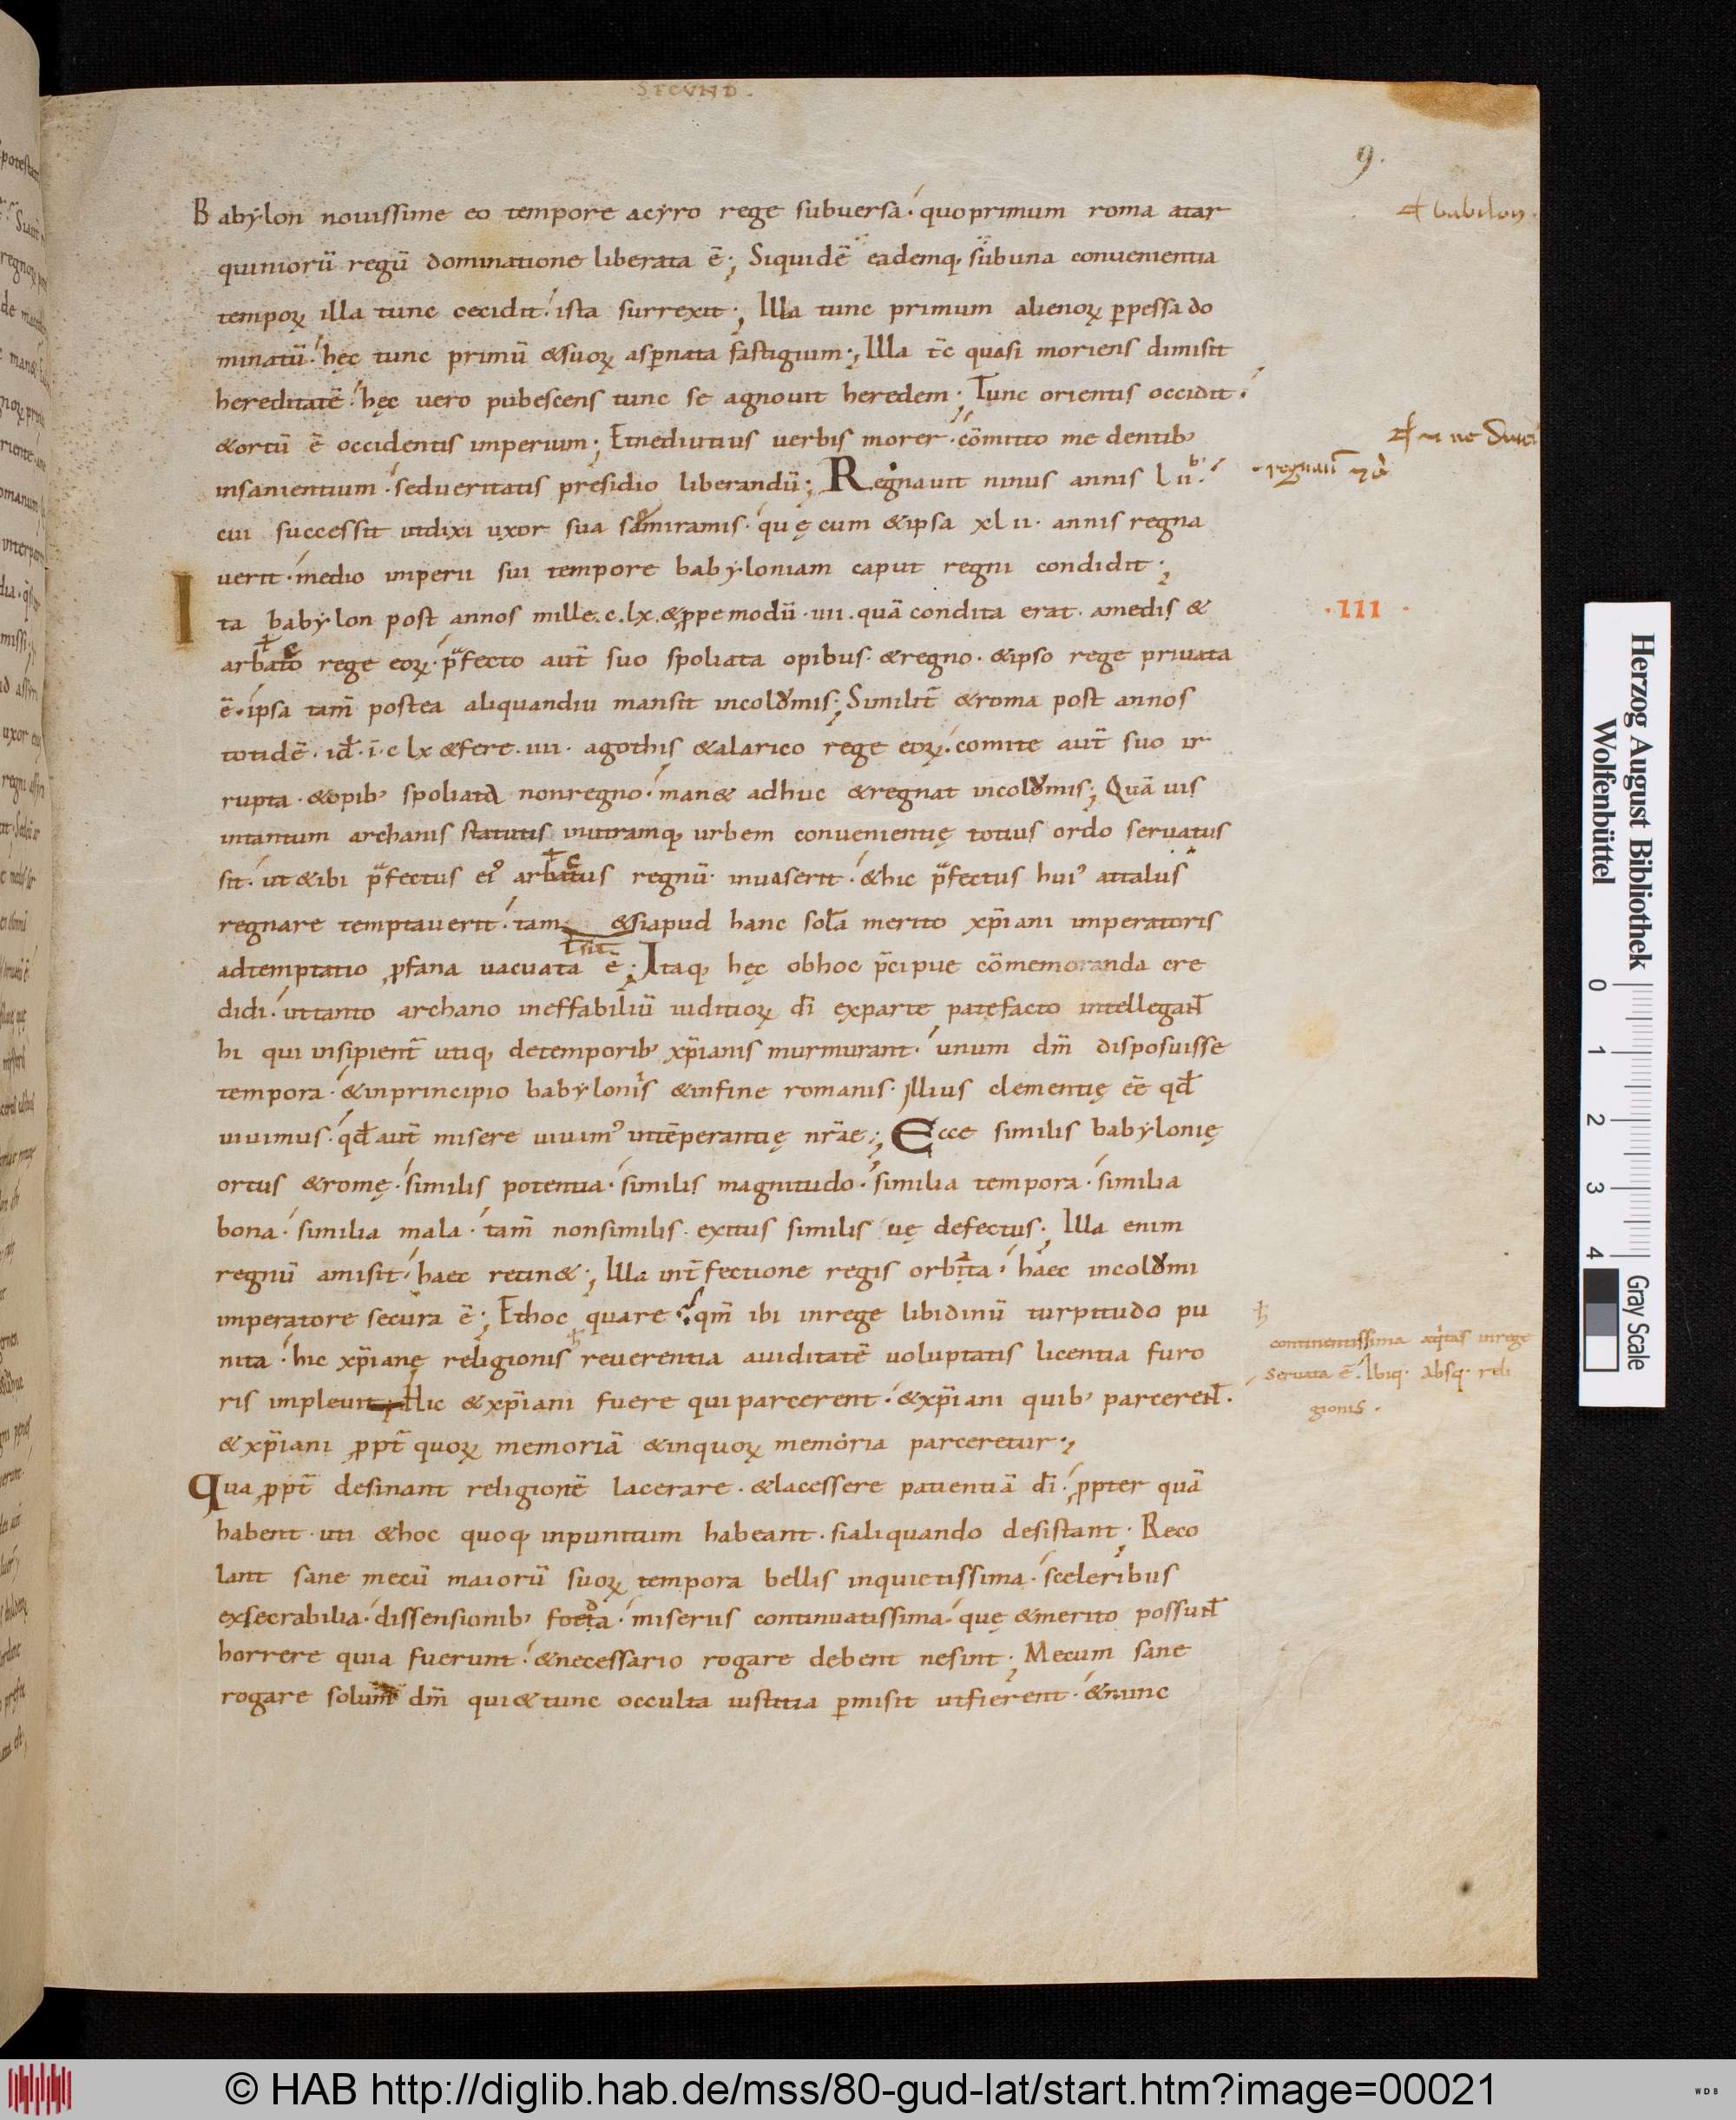 SECVND.
9.
Babẏlon nouissime eo tempore acẏro rege subuersa. quoprimum roma atar
quiniorū regū dominatione liberata ē; Siquidē eademq; subuna conuenientia
temporꝝ illa tunc cecidit. ista surrexit; Illa tunc primum alienorꝝ ꝑpessa do
minatū. hęc tunc primū &suorꝝ asꝑnata fastigium; Illa tc̄ quasi moriens dimisit
hereditatē. hęc uero pubescens tunc se agnouit heredem; Tunc orientis occidit.
&ortū ē occidentis imperium; Etnediutius uerbis morer. cōmitto me dentib;
insanientium. sedueritatis presidio liberandū; Regnauit ninus annis lii.
cui successit utdixi uxor sua samiramis. quę cum &ipsa xlii. annis regna
uerit. medio imperii sui tempore babẏloniam caput regni condidit;
Ita babẏlon post annos mille.c.lx.&ꝓpemodū.iiii.quā condita erat. amedis &
arbato rege eorꝝ. p̄fecto aut̄ suo spoliata opibus. &regno. &ipso rege priuata
ē. ipsa tam̄ postea aliquandiu mansit incolomis; Similit̄ &roma post annos
totidē. id̄. ī.c lx &fere.iiii. agothis &alarico rege eorꝝ. comite aut̄ suo ir
rupta. &opib; spoliata nonregno. man& adhuc &regnat incolomis; Quā uis
intantum archanis statutis inutramq; urbem conuenientię totius ordo seruatus
sit. ut &ibi p̄fectus ei᾿ arbatus regnū inuaserit. &hic p̄fectus hui᾿ attalus
regnare temptauerit. tam &siapud hanc sola merito xp̄iani imperatoris
ł sit
adtemptatio ꝓfana uacuata ē; Itaq; hęc obhoc p̄cipue cōmemoranda cre
didi. uttanto archano ineffabiliū iuditiorꝝ dī exparte patefacto intellegant̄
hi qui insipient̄ utiq; detemporib; xp̄ianis murmurant. unum dm̄ disposuisse
tempora. &inprincipio babẏlonis &infine romanis. illius clementię ēē qd̄
uiuimus. qd̄ aut̄ misere uiuim᾿ intēperantię nr̄ae; Ecce similis babẏlonię
ortus &romę. similis potentia. similis magnitudo. similia tempora. similia
bona. similia mala. tam̄ nonsimilis exitus similis uę defectus; Illa enim
regnū amisit. haec retin&; Illa int̄fectione regis orbata. haec incolomi
imperatore secura ē; Ethoc quare? qm̄ ibi inrege libidinū turpitudo pu
nita. hic xp̄ianę religionis reuerentia auiditatē uoluptatis licentia furo
ris impleuit. Hic &xp̄iani fuere qui parcerent. &xp̄iani quib; parcerent̄.
&xp̄iani ꝓpt̄ quorꝝ memoriā &inquorꝝ memoria parceretur;
Qua ꝓpt̄ desinant religionē lacerare. &lacessere patientiā dī. ꝓpter quā
habent uti &hoc quoq; inpunitum habeant. sialiquando desistant; Reco
lant sane mecū maiorū suorꝝ tempora bellis inquietissima. sceleribus
exsecrabilia. dissensionib; foeta. miseriis continuatissima. quę &merito possunt̄
horrere quia fuerunt. &necessario rogare debent nesint; Mecum sane
rogare solum dm̄ qui&tunc occulta iustitia ꝑmisit utfierent. &nunc
babilon.
regnau
.III.
continentissima aeq̇tas inrege
seruata ē. Ibiq; absq; reli
gionis.
Herzog August Bibliothek
Wolfenbüttel
0 1 2 3 4
Gray Scale
© HAB http://diglib.hab.de/mss/80-gud-lat/start.htm?image=00021
WDB